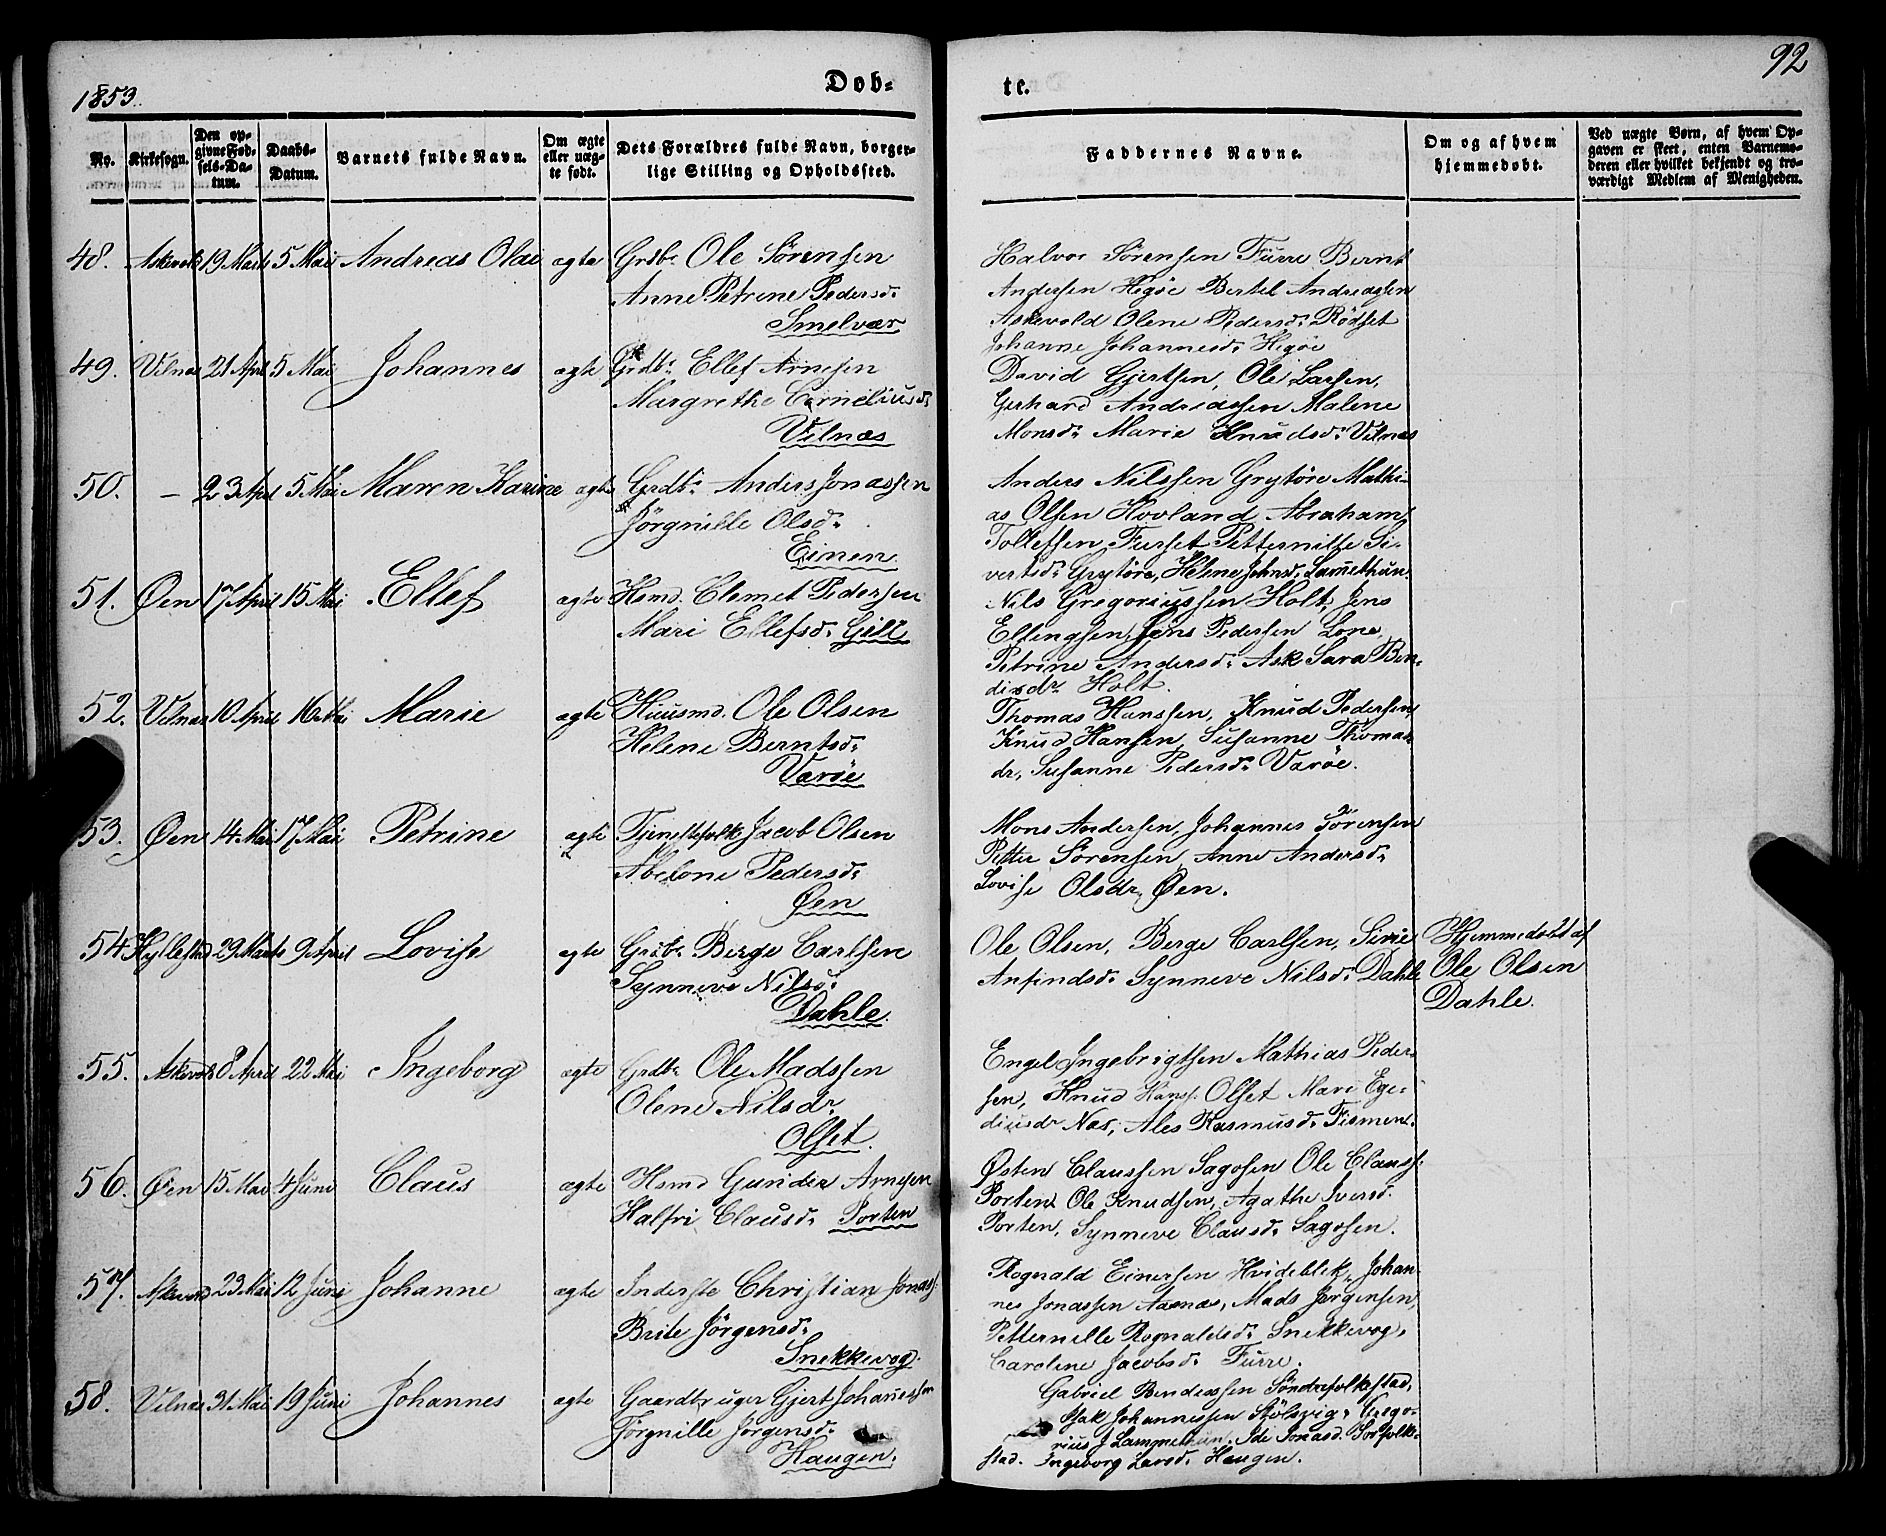 1853.
Døb-
te.
92
No.
Kirkesogn.
Den op-
givne Fød-
sels-Da-
tum.
Daabs-
Datum.
Barnets fulde Navn.
Om ægte
eller uæg-
te født.
Dets Forældres fulde Navn, borger-
lige Stilling og Opholdssted.
Faddernes Navne.
Om og af hvem
hjemmedøbt.
Ved uægte Børn, af hvem Op-
gaven er skeet, enten Barnemo-
deren eller hvilket bekjendt og tro-
værdigt Medlem af Menigheden.
48. Askevold 19 Marts 5 Mai Andreas Olai ægte Grdbr Ole Sørensen
Anne Petrine Pedersd.
Smelvær
Halvor Sørensen Furre Bernt
Andersen Higøe Bertel Andreassen
Askevold Olene Pedersd. Rødset
Johanne Johannesd. Higøe
49. Vilnæs 21 April 5 Mai Johannes ægte Grdbr Ellef Arnesen
Margrethe Corneliusd.
Vilnæs
David Gjertsen, Ole Larsen,
Gerhard Andreassen Malene
Monsd. Marie Knudsd. Vilnæs
50. — 23 April 5 Mai Maren Karine ægte Grdbr Anders Jonassen
Jørgnille Olsd.
Einen
Anders Nilssen Grytøre Mathi-
as Olsen Hovland Abraham
Tollefsen Furset Petternille Si-
vertsd. Grytøre, Helene Johnsd. Lamethun.
51. Øen 17 April 15 Mai Ellef ægte Hsmd. Clemet Pedersen
Mari Ellefsd. Gill
Nils Gregoriussen Holt, Jens
Ellingsen, Jens Pedersen Lone,
Petrine Andersd. Ask Sara Ben-
disdr Holt.
52. Vilnæs 10 April 16 Mai Marie ægte Huusmd. Ole Olsen
Helene Berntsd.
Værøe
Thomas Hanssen, Knud Pedersen,
Knud Hansen, Susanne Thomas-
dr, Susanne Pedersd. Værøe.
53. Øen 14 Mai 17 Mai Petrine ægte Tjenestefolk Jacob Olsen
Abelone Pedersd.
Øen
Mons Andersen, Johannes Sørensen
Petter Sørensen, Anne Andersd.
Lovise Olsdr Øen.
54. Hyllestad 29 Marts 9 April Lovise ægte Grdbr Berge Carlsen
Synneve Nilsd.
Dahle
Ole Olsen, Berge Carlsen, Sirie
Anfindsd. Synneve Nilsd. Dahle
Hjemmedøbt af
Ole Olsen
Dahle.
55. Askevold 8 April 22 Mai Ingeborg ægte Grdbr Ole Madssen
Olene Nilsdr
Olset.
Engel Ingebrigtsen Mathias Peder-
sen, Knud Hans. Olset Mari Ege-
diusdr Næs, Ales Rasmusd. Tismen.
56. Øen 15 Mai 4 Juni Claus ægte Hsmd Gunder Arnesen
Halfri Clausd. Porten
Østen Claussen Sagosen Ole Clauss.
Porten Ole Knudsen, Agathe Iversd.
Porten, Synneve Clausd. Sagosen.
57. Askevold 23 Mai 12 Juni Johanne ægte Inderste Christian Jonass.
Brite Jørgensd.
Snekkevog.
Rognald Einersen Hvideblik, Johan-
nes Jonassen Aamæs, Mads Jørgensen,
Petternille Rognaldsd. Snekkevog,
Caroline Jacobsd. Furre.
58. Vilnæs 31 Mai 19 Juni Johannes ægte Gaardbruger Gjert Johanessen
Jørgnille Jørgensd.
Haugen.
Gabriel Bendissen Søndrefolkestad,
Isak Johannessen Stølsvig, Grego-
rius J Lammethun, Ide Jonasd. Sørfolke-
stad. Ingeborg Larsd. Haugen.